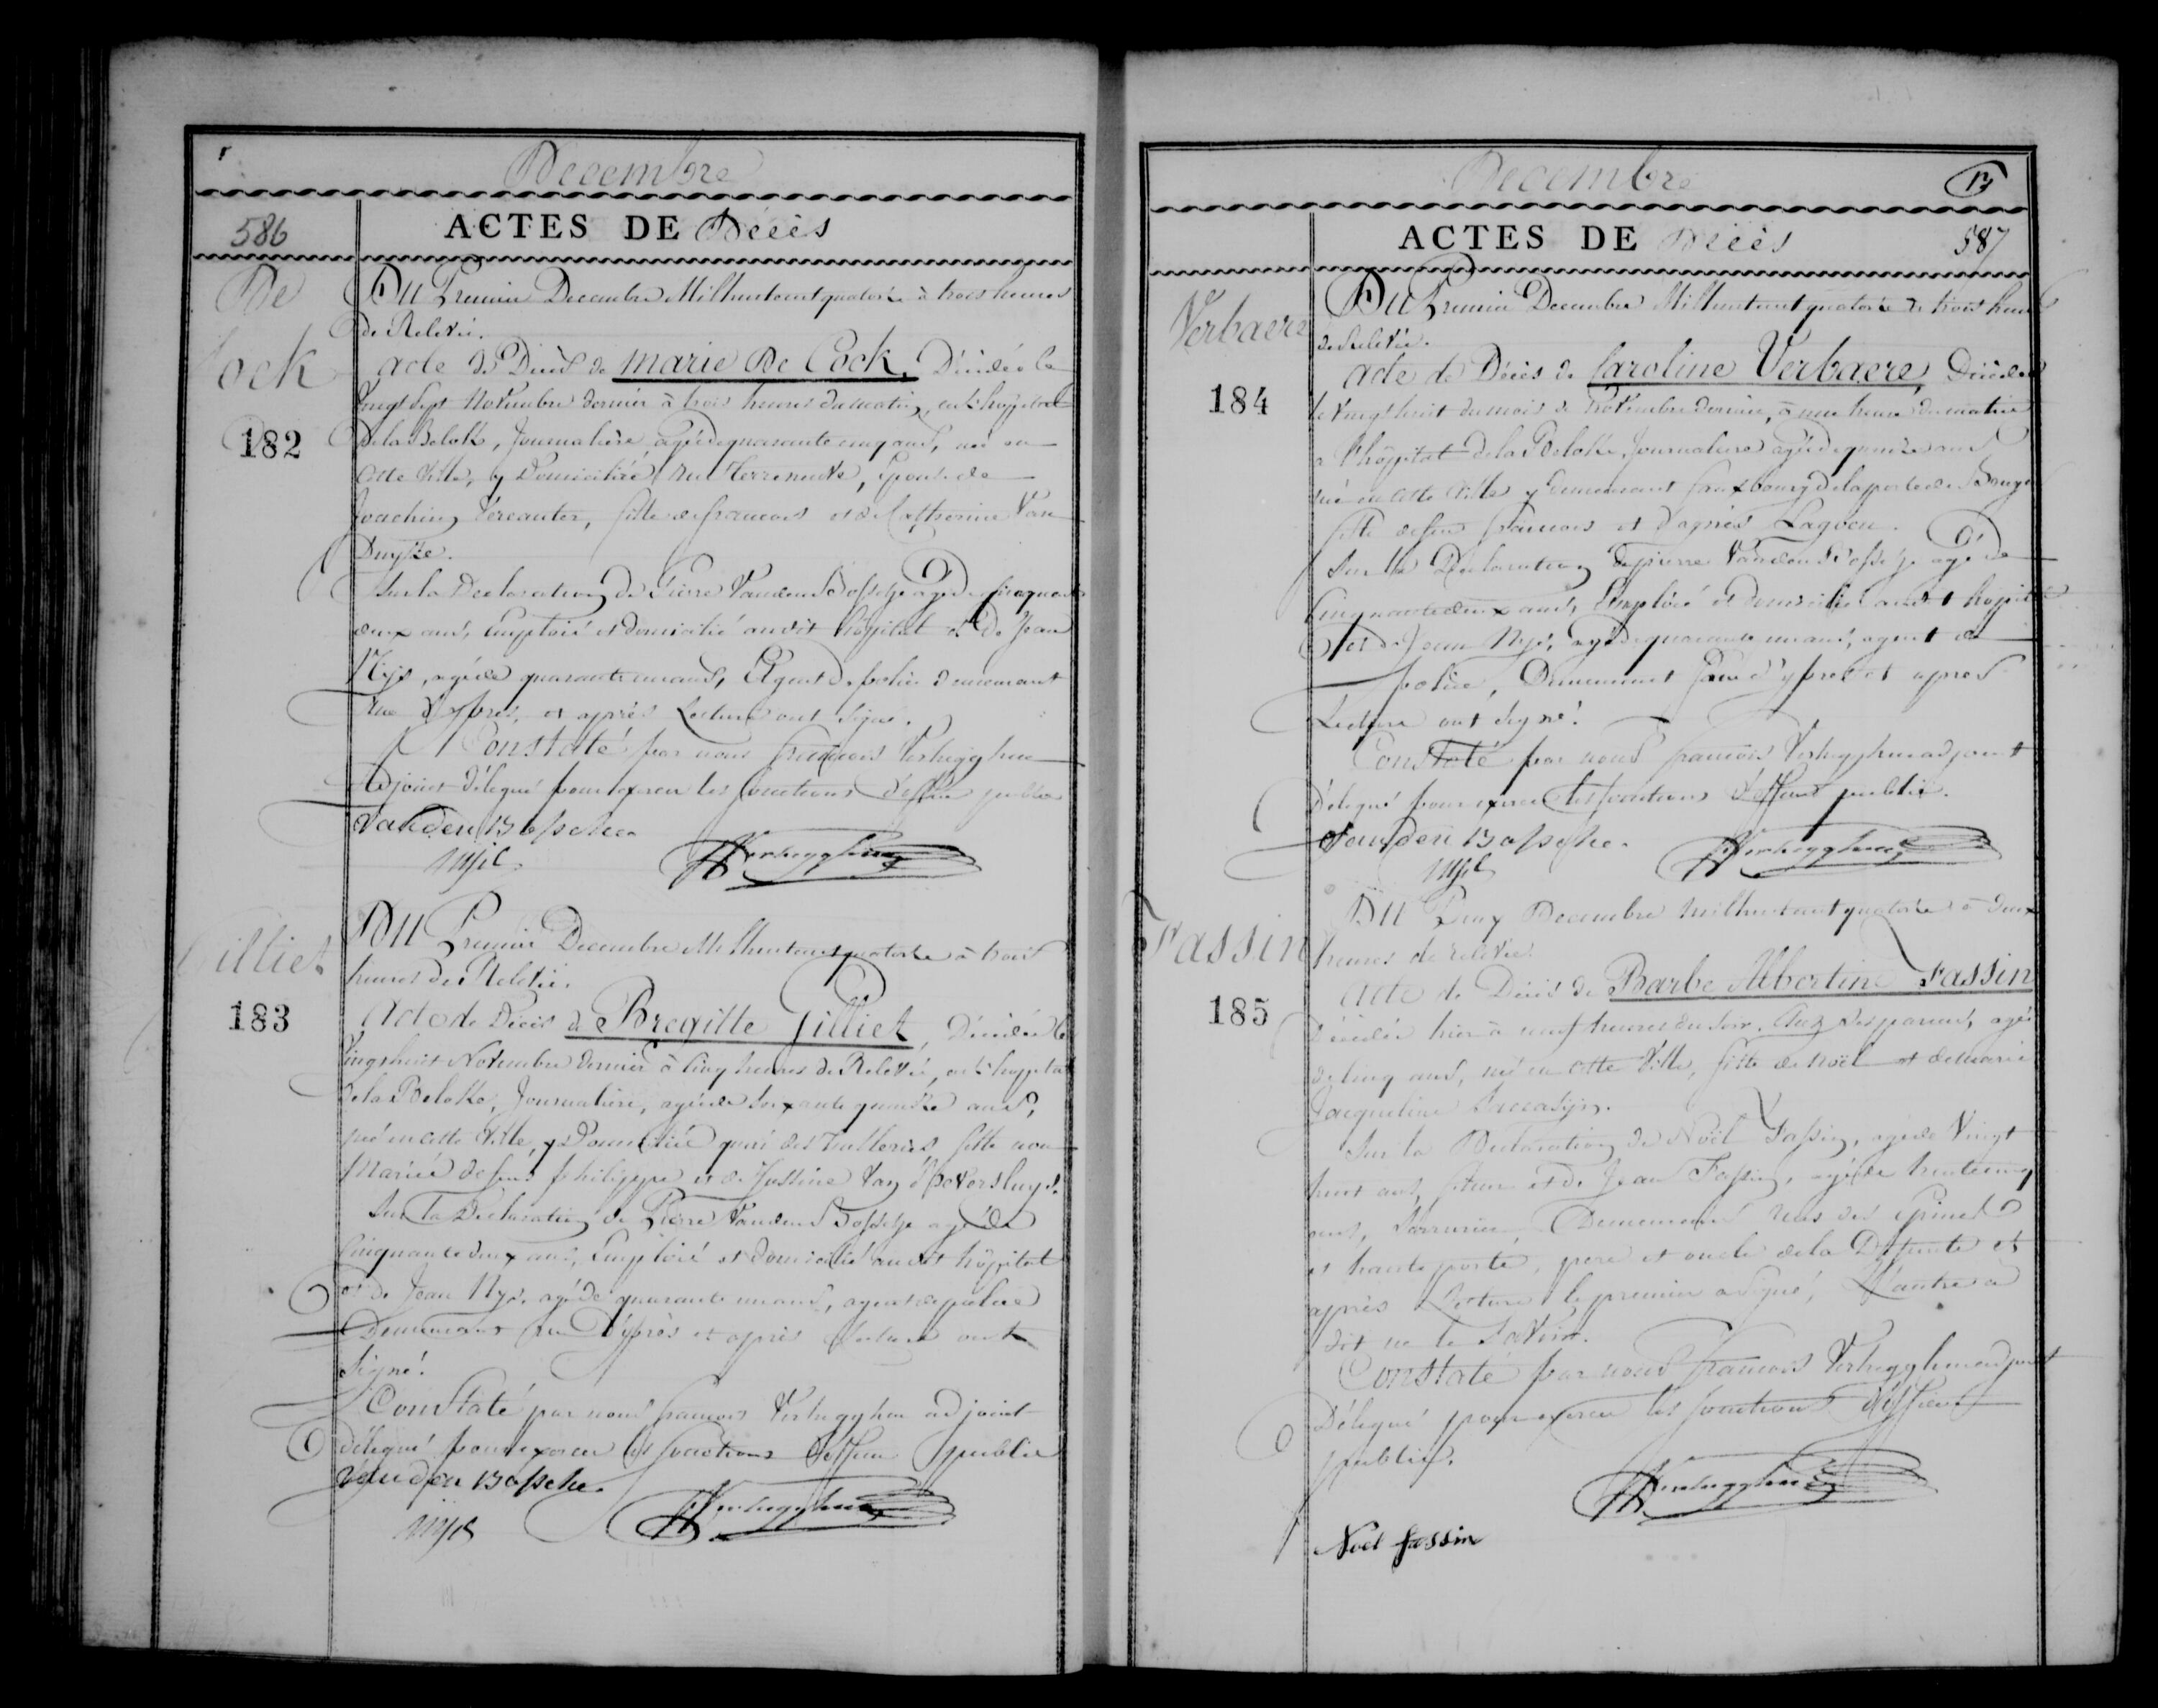 Decembre
586
ACTES DE Décès
De
Cock
182
Du Premier Decembre Mil huit cent quatorze à trois heures
de Relevée.
acte de Décès de Marie De Cock, Décédée le
vingt sept Novembre dernier à trois heures du matin, en l'hôpital
de la Biloke, Journalière, agée de quarante cinq ans, née en
cette Ville, y Domiciliée, Rue Terreneuve, Epouse de
Joachim Vercauter, fille de francois et de Catherine Van
Duyse.
Sur la Declaration de Pierre Vanden Bossche agé de cinquante
deux ans, Emploié et domicilié au dit hôpital et de Jean
Nijs, agé de quarante un ans, Agent de police demeurant
Rue d'ypres, et après Lecture ont signé.
Constaté par nous francois Verhegghen
Adjoint délégué pour exercer les fonctions d'officier public
Vanden Bossche
Nijs
Verhegghen
Gilliet
183
Du Premier Decembre Mil huit cent quatorze à trois
heures de Relevée.
Acte de Décès de Bregitte Gilliet, Décédée le
vingt huit Novembre dernier à cinq heures de Relevée, en l'hôpital
de la Biloke, Journalière, agée de soixante quinze ans,
née en cette Ville, y Domiciliée quai des Tuilleries, fille non
Mariée de feus philippe et de Justine Van
Sur la Déclaration de Pierre Vanden Bossche agé de
Cinquante deux ans, Emploié et domicilié au dit hôpital
et de Jean Nys, agé de quarante un ans, agent de police
Demeurant rue d'ypres et après lecture ont
Signé.
Constaté par nous francois Verhegghen adjoint
délégué pour exercer les fonctions d'officier public
Vanden Bossche
Nijs
Verhegghen
Decembre
ACTES DE Décès
587
Verbaere
184
Du Premier Decembre Mil huit cent quatorze à trois heures
de Relevée.
Acte de Décès de Caroline Verbaere, Décédée
le vingt huit du mois de Novembre dernier, à une heure du matin
à l'hôpital de la Biloke, Journalière agée de quinze ans
née en cette Ville y demeurant fauxbourg de la porte de Bruges
fille de feu francois et d'agnès Lagoen.
Sur la Declaration de pierre Vanden Bossche agé de
Cinquante deux ans, Emploié et domicilié au dit hôpital
et de Jean Nys, agé de quarante un ans, agent de
police, Demeurant rue d'ypres et apres
Lecture ont signé.
Constaté par nous francois Verhegghen adjoint
délégué pour exercer les fonctions d'officier public.
Vanden Bossche.
Nijs
Verhegghen
Fassin
185
Du Deux Decembre mil huit cent quatorze à deux
heures de relevée.
Acte de Décès de Barbe Albertine Fassin
Décédée hier à neuf heures du soir, chez ses parens, agée
de cinq ans, née en cette Ville, fille de Noël et de Marie
Jacqueline
Sur la Declaration de Noël Fassin, agé de Vingt
huit ans, et de Jean Fassin, agé de trente cinq
ans, Demeurans rues des Epines
et haute porte, pere et oncle de la Défunte et
après Lecture le premier a signé, L'autre a
dit ne le Savoir.
Constaté par nous francois Verhegghen adjoint
Délégué pour exercer les fonctions d'officier
public.
Verhegghen
Noel fassin